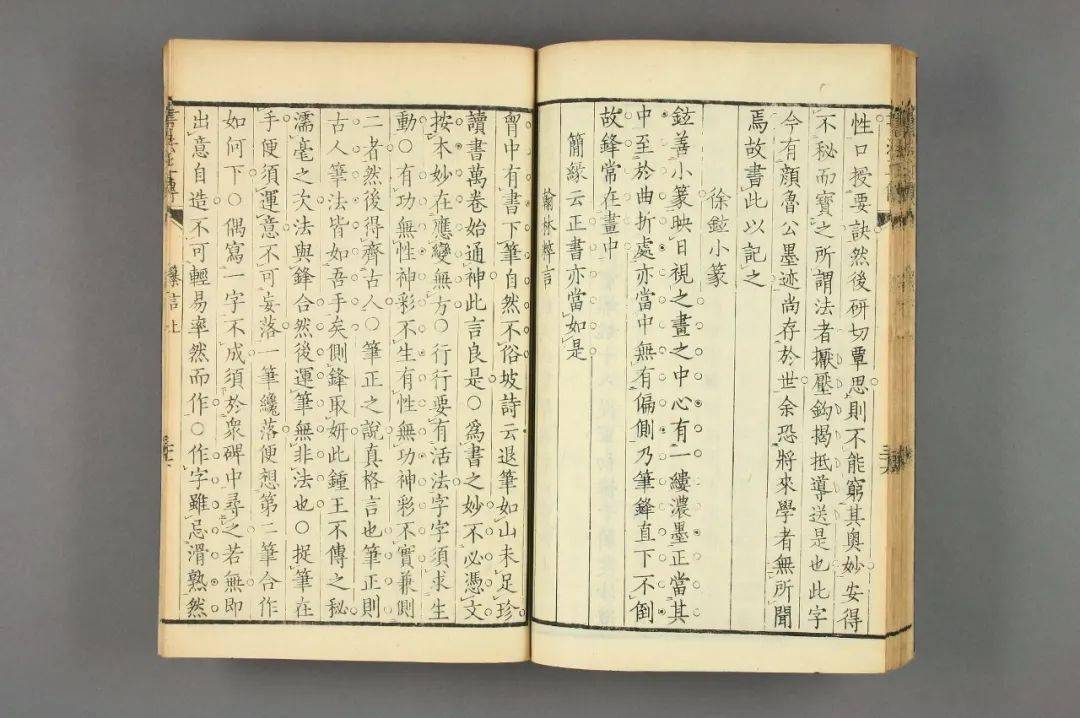 性口授要訣然後研切覃思則不能窮其奧妙安得
不秘而寶之所謂法者擫壓鈎揭抵導送是也此字
今有顔魯公墨迹尚存於世余恐將來學者無所聞
焉故書此以記之
徐鉉小篆
鉉善小篆映日視之畫之中心有一縷濃墨正當其
中至於曲折處亦當中無有偏側乃筆鋒直下不倒
故鋒常在畫中
簡緣云正書亦當如是
翰林粹言
胷中有書下筆自然不俗坡詩云退筆如山未足珍
讀書萬卷始通神此言良是〇爲書之妙不必憑文
按本妙在應變無方〇行行要有活法字字須求生
動〇有功無性神彩不生有性無功神彩不實兼側
二者然後得齊古人〇筆正之說真格言也筆正則
古人筆法皆如吾手矣側鋒取妍此鍾王不傳之秘
濡毫之次法與鋒合然後運筆無非法也〇捉筆在
手便須運意不可妄落一筆纔落便想第二筆合作
如何下〇偶寫一字不成須於衆碑中尋之若無即
出意自造不可輕易率然而作〇作字雖忌滑熟然
纂言上